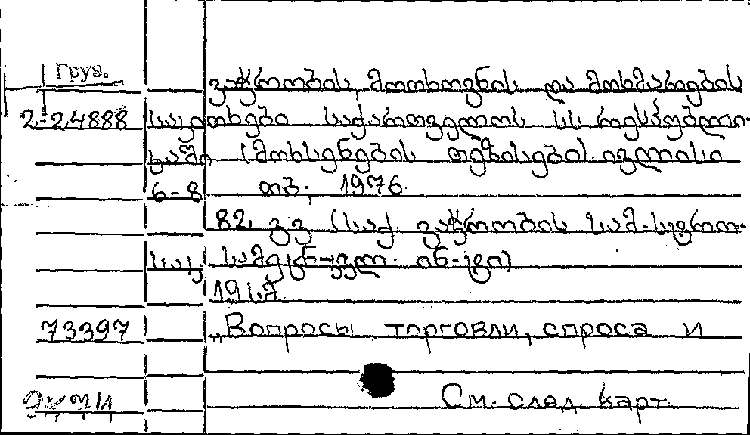 Груз.
ვაჭრობის, მოთხოვნის და მოხმარების
2-24888 საკითხები საქართველოს სს რესპუბლი-
კაში (მოხსენების თეზისები) ივლისი
6-8 თბ., 1976.
82 გვ (საქ ვაჭრობის სამ-
სამეცნ-კვლ. ინ-ტი)
73397 „Вопросы торговли, спроса и
См. след. карт.